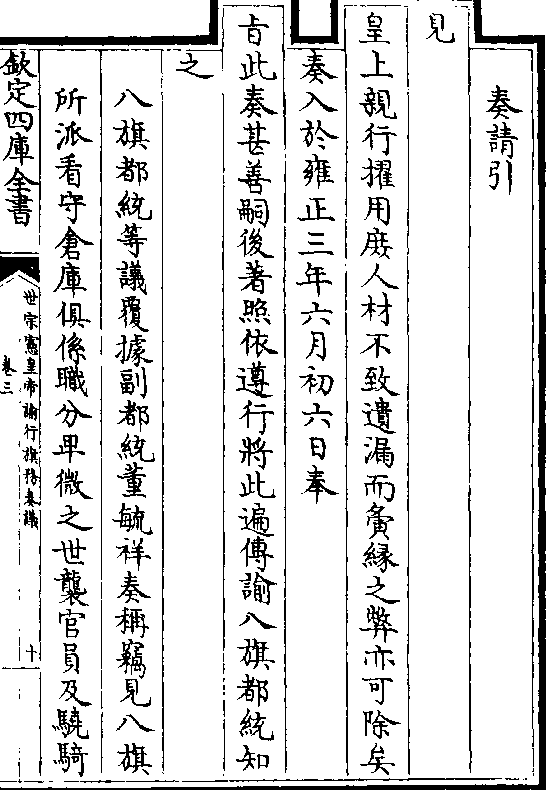 奏請引
見
皇上親行擢用庶人材不致遺漏而夤緣之弊亦可除矣
奏入於雍正三年六月初六日奉
旨此奏甚善嗣後著照依遵行將此遍傳諭八旗都統知
之
八旗都統等議覆據副都統董毓祥奏稱竊見八旗
所派看守倉庫俱係職分卑微之世襲官員及驍騎
欽定四庫全書
世宗憲皇帝諭行旗務奏議
卷三
十